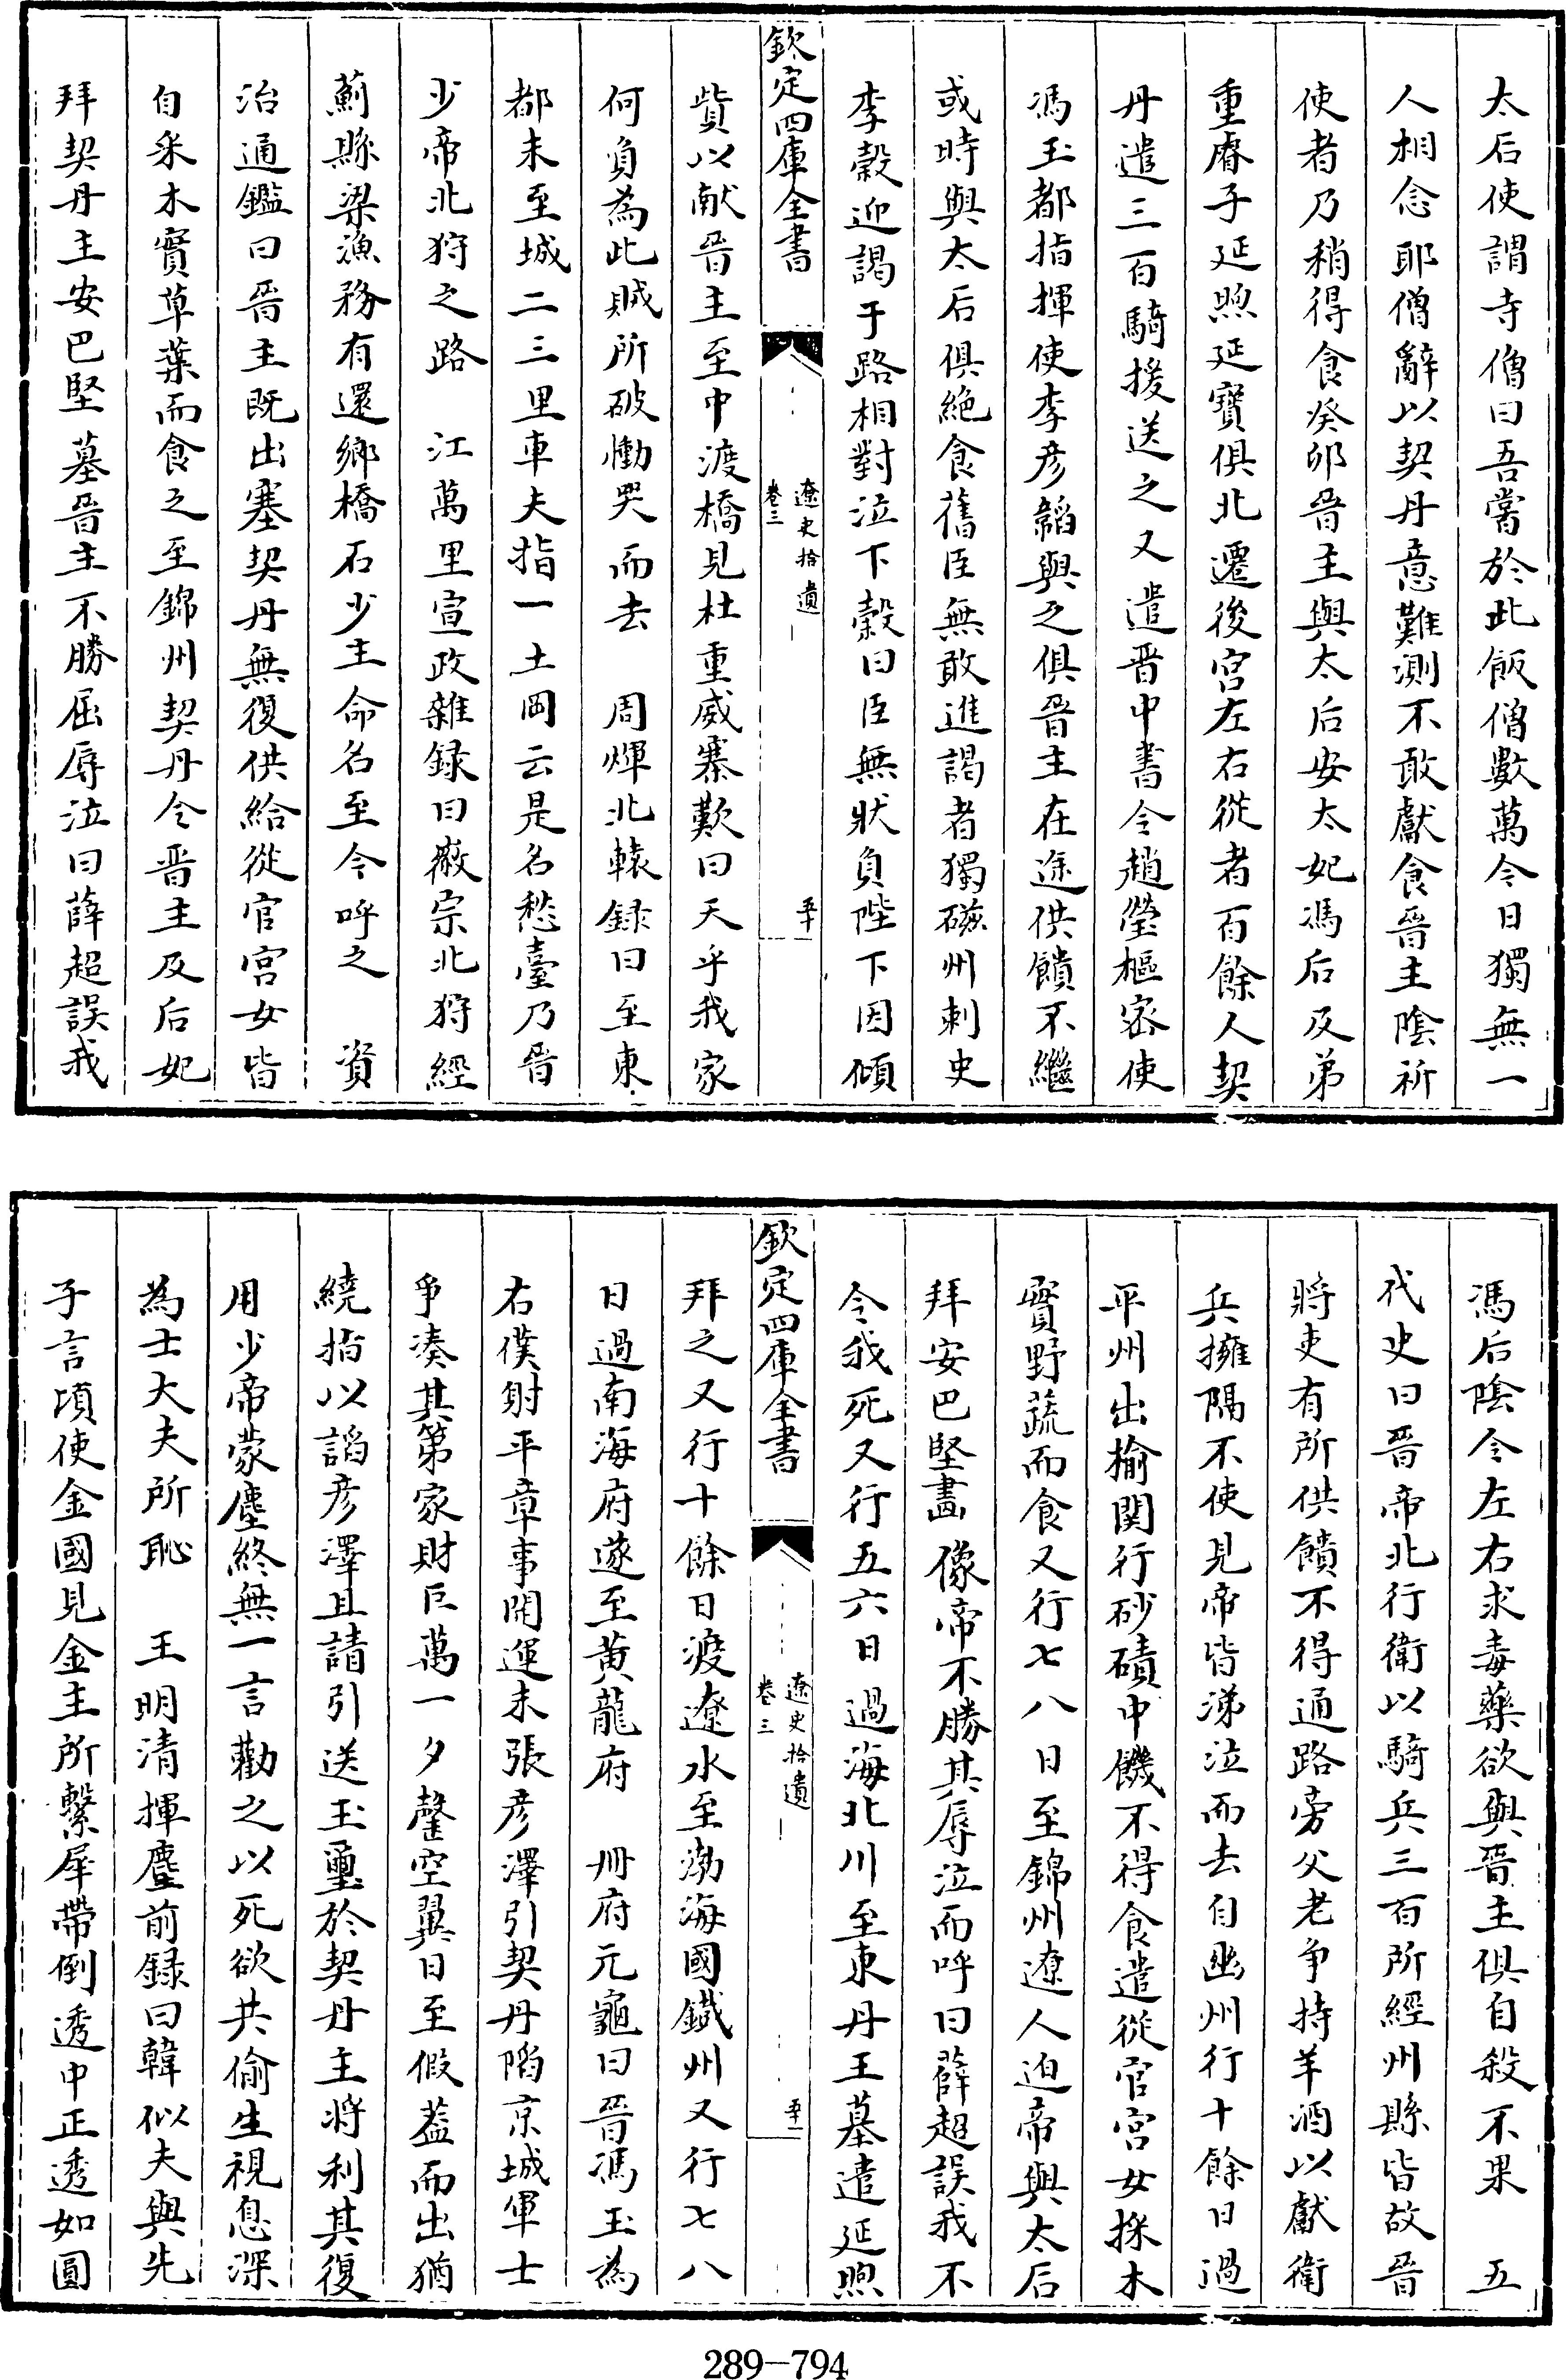 太后使謂寺僧曰吾嘗於此飯僧數萬今日獨無一
人相念耶僧辭以契丹意難測不敢獻食晉主陰祈
使者乃稍得食癸卯晉主與太后安太妃馮后及弟
重睿子延煦延寶俱北遷後宮左右從者百餘人契
丹遣三百騎援送之又遣晉中書令趙瑩樞密使
馮玉都指揮使李彥韜與之俱晉主在途供饋不繼
或時與太后俱絕食舊臣無敢進謁者獨磁州刺史
李穀迎謁于路相對泣下穀曰臣無狀負陛下因傾
欽定四庫全書
遼史拾遺
卷三
五十
貲以献晉主至中渡橋見杜重威寨歎曰天乎我家
何負為此賊所破慟哭而去　周煇北轅録曰至東
都未至城二三里車夫指一土岡云是名愁臺乃晉
少帝北狩之路　江萬里宣政雜録曰徽宗北狩經
薊縣梁漁務有還鄉橋石少主命名至今呼之　資
治通鑑曰晉主既出塞契丹無復供給從官宮女皆
自采木實草葉而食之至錦州契丹令晉主及后妃
拜契丹主安巴堅墓晉主不勝屈辱泣曰薛超誤我
馮后陰令左右求毒藥欲與晉主俱自殺不果　五
代史曰晉帝北行衛以騎兵三百所經州縣皆故晉
將吏有所供饋不得通路旁父老爭持羊酒以獻衛
兵擁隔不使見帝皆涕泣而去自幽州行十餘日過
平州出榆関行砂磧中饑不得食遣從官宮女採木
實野蔬而食又行七八日至錦州遼人迫帝與太后
拜安巴堅畫像帝不勝其辱泣而呼曰薛超誤我不
令我死又行五六日過海北川至東丹王墓遣延煦
欽定四庫全書
遼史拾遺
卷三
五十一
拜之又行十餘日渡遼水至渤海國鐵州又行七八
日過南海府遂至黃龍府　冊府元龜曰晉馮玉為
右僕射平章事開運末張彥澤引契丹陷京城軍士
爭湊其第家財巨萬一夕罄空翼日至假葢而出猶
繞指以諂彥澤且請引送玉璽於契丹主將利其復
用少帝蒙塵終無一言勸之以死欲共偷生視息深
為士大夫所恥　王明清揮麈前録曰韓似夫與先
子言頃使金國見金主所繫犀帶倒透中正透如圓
289-794